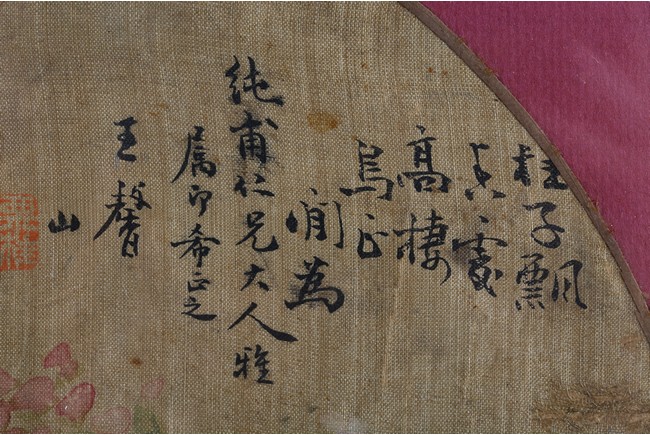 桂子飄
香處
高棲
鳥正
閒為
純甫仁兄大人雅
屬即希正之
王馨山